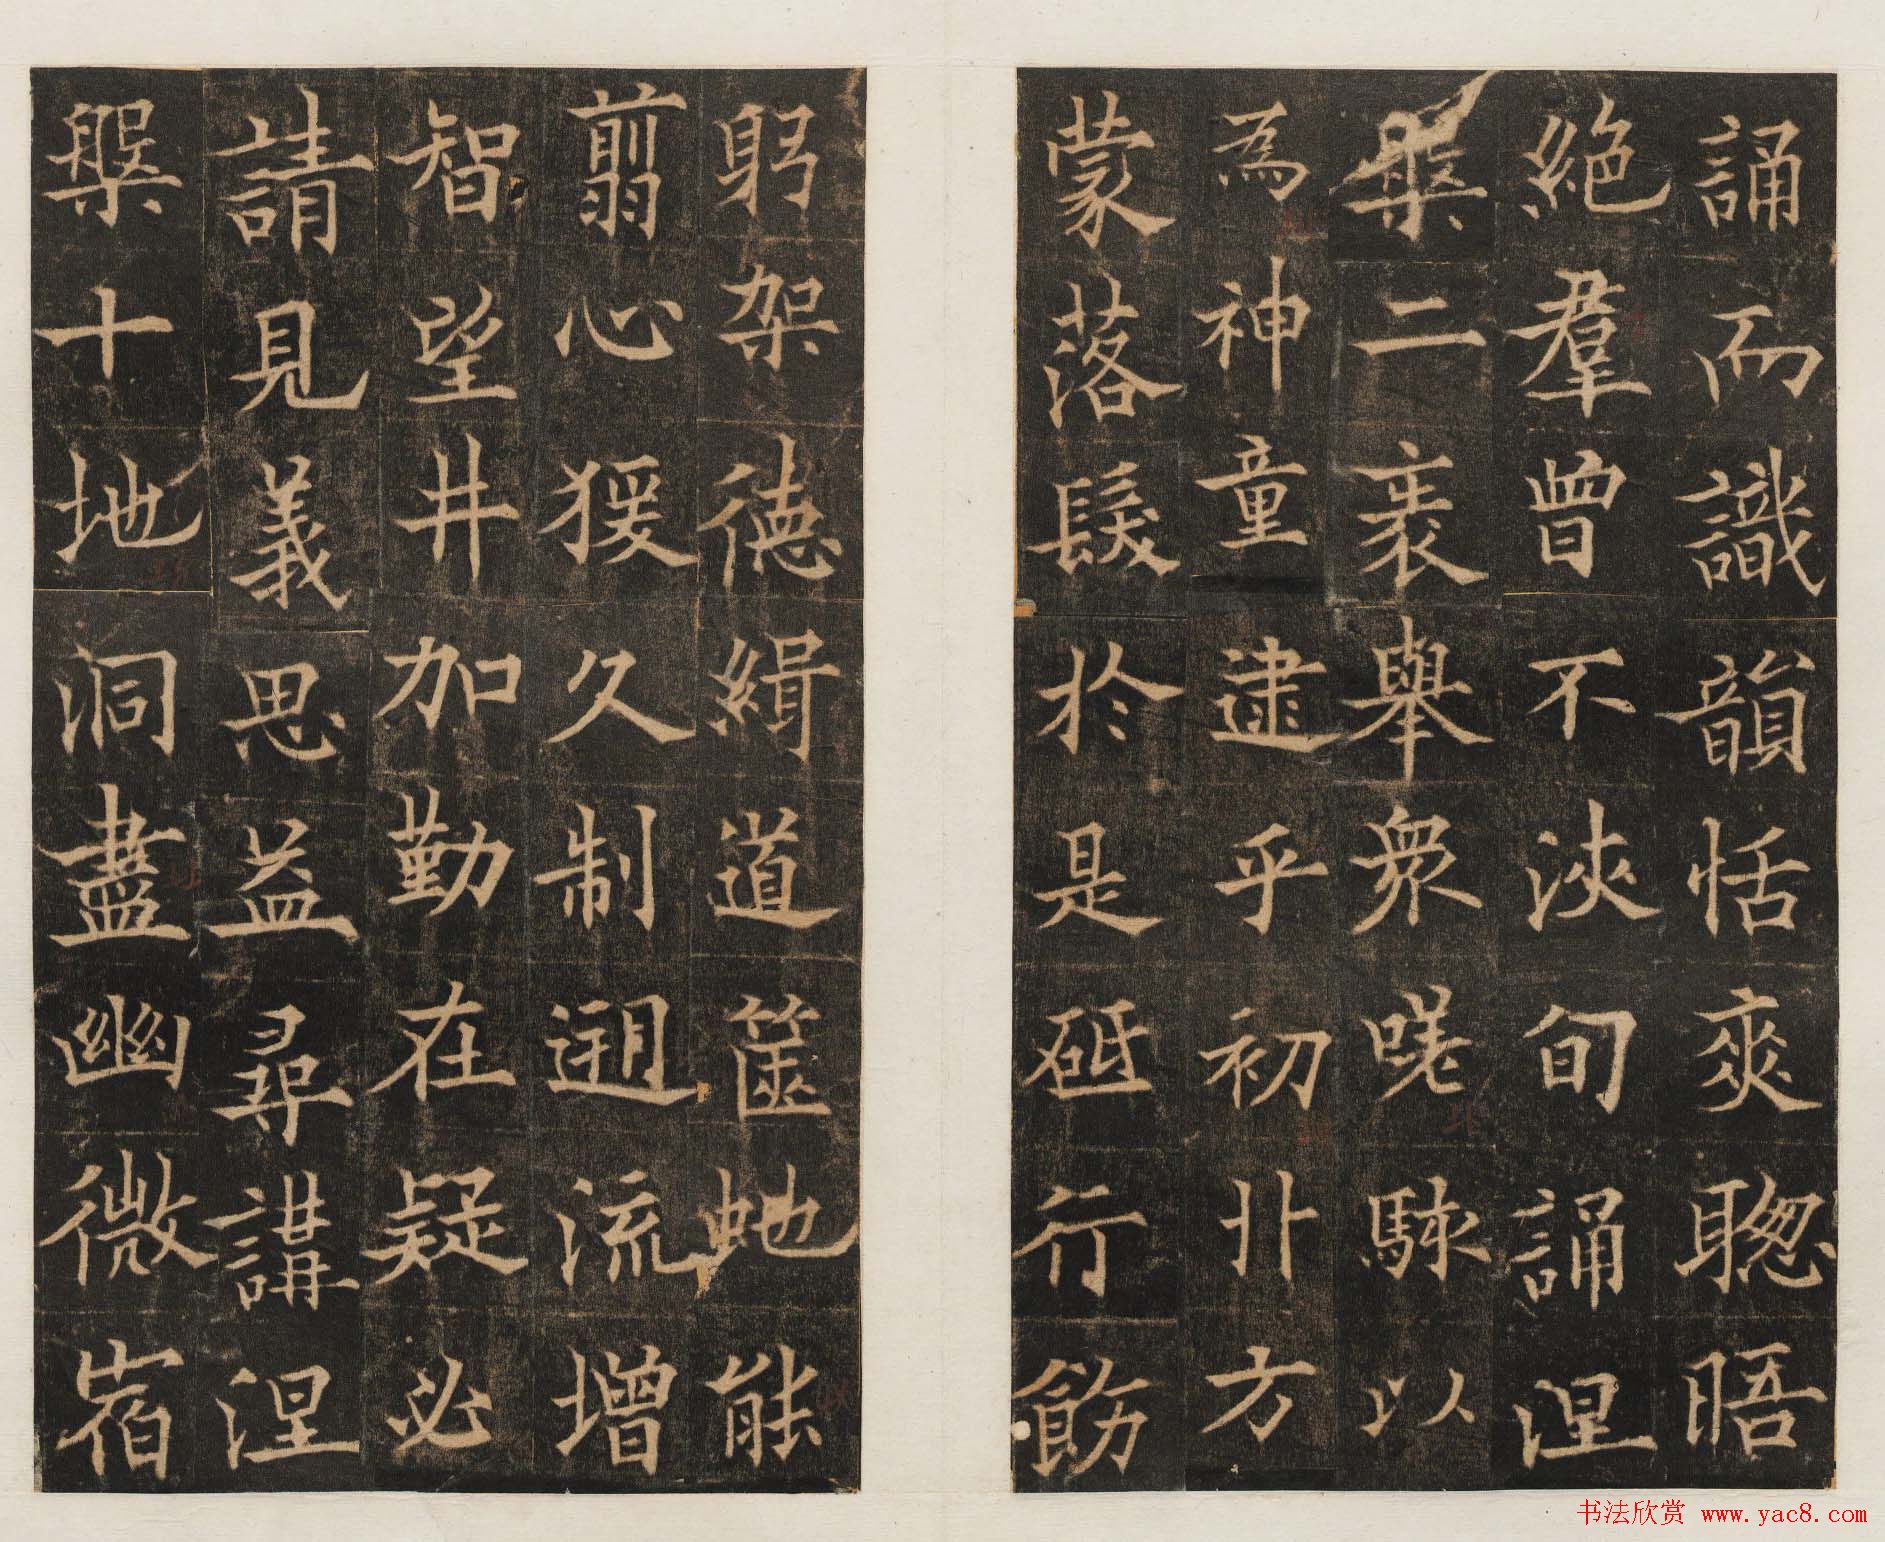 誦而識韻恬爽聦晤
絶羣曾不浹旬誦涅
槃二袠舉衆嗟駷以
為神童逮乎初卝方
蒙落髮於是砥行飭
躬架德緝道篋虵能
翦心猨久制遡流增
智望井加勤在疑必
請見義思益尋講涅
槃十地洞盡幽微宿
书法欣赏 www.yac8.com